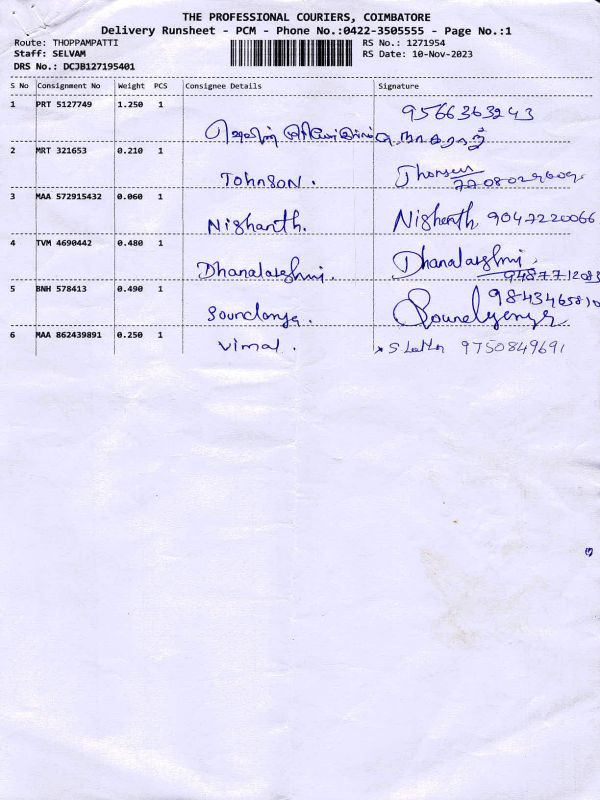 THE PROFESSIONAL COURIERS, COIMBATORE
Delivery Runsheet - PCM - Phone No.:0422-3505555 - Page No.:1
Route: THOPPAMPATTI RS No.: 1271954
Staff: SELVAM RS Date: 10-Nov-2023
DRS No.: DCJB127195401
S No Consignment No Weight PCS Consignee Details Signature
1 PRT 5127749 1.250 1 9566363243
நாகராஜ்
2 MRT 321653 0.210 1
Johnson.
3 MAA 572915432 0.060 1
Nishanth. Nishanth 9047220066
4 TVM 4690442 0.480 1
Dhanalakshmi. Dhanalakshmi.
9487712083
5 BNH 578413 0.490 1 9843465810
6 MAA 862439891 0.250 1 Vimal. 9750849691